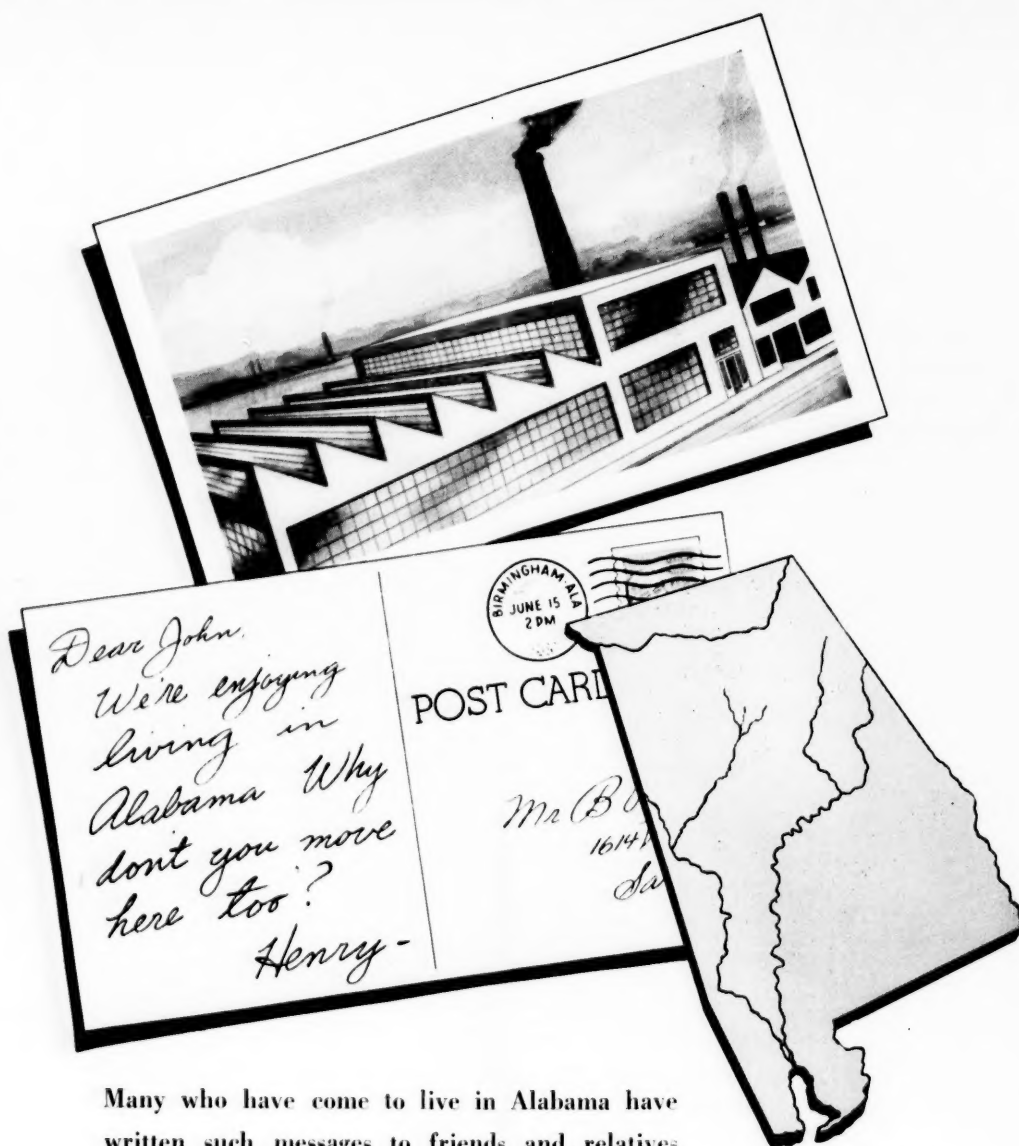 Dear John,
We're enjoying
living in
Alabama Why
don't you move
here too?
Henry-
BIRMINGHAM·ALA
JUNE 15
2 PM
POST CARD
Mr B
1614
Sa
Many who have come to live in Alabama have
written such messages to friends and relatives